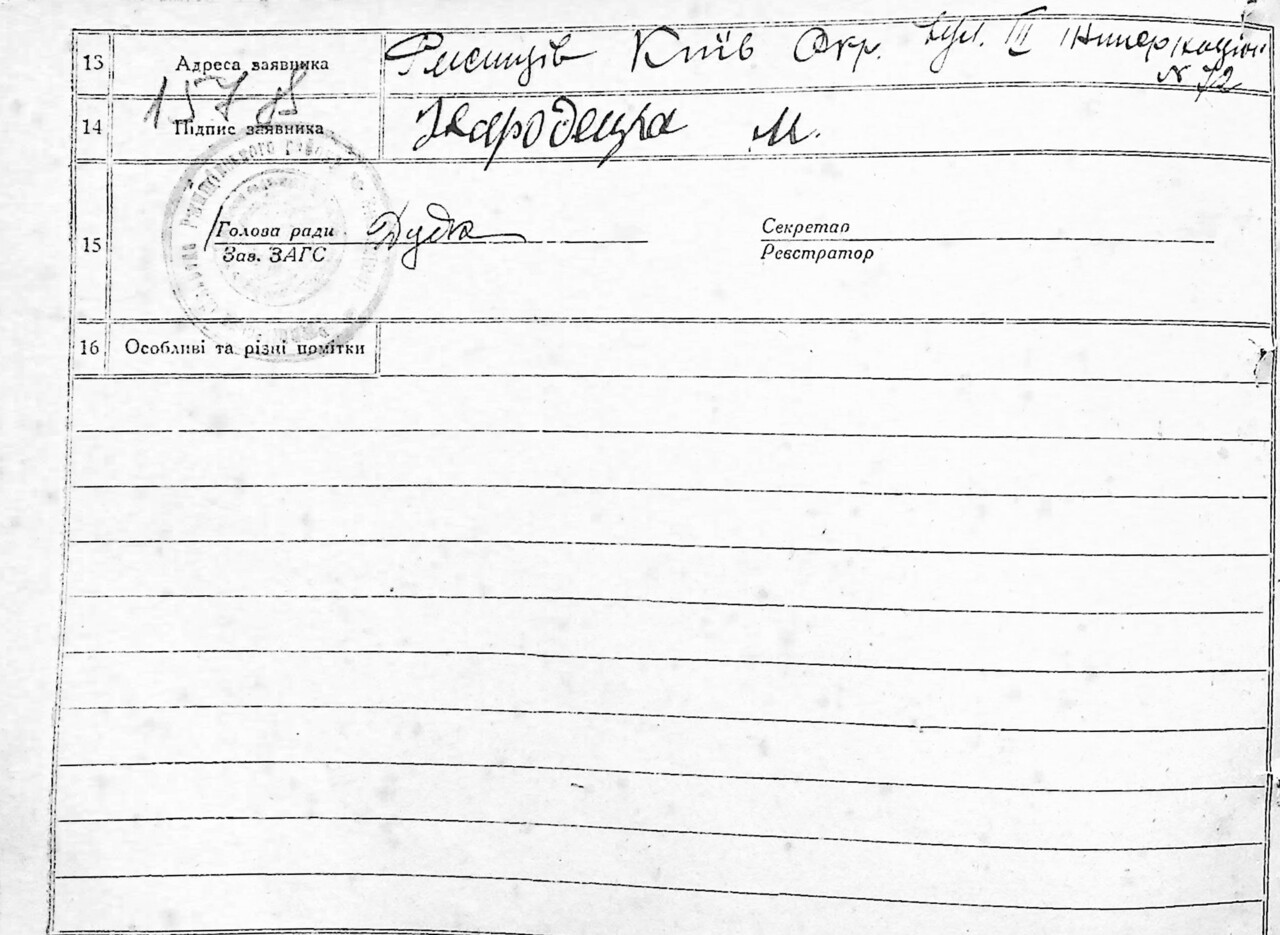 13 Адреса заявника Ржищів Київ Окр. вул. III Інтернаціон
N 72
157
14 Підпис заявника М.
15 Голова ради Дудка Секретар
Зав. ЗАГС Реєстратор
16 Особливі та різні помітки